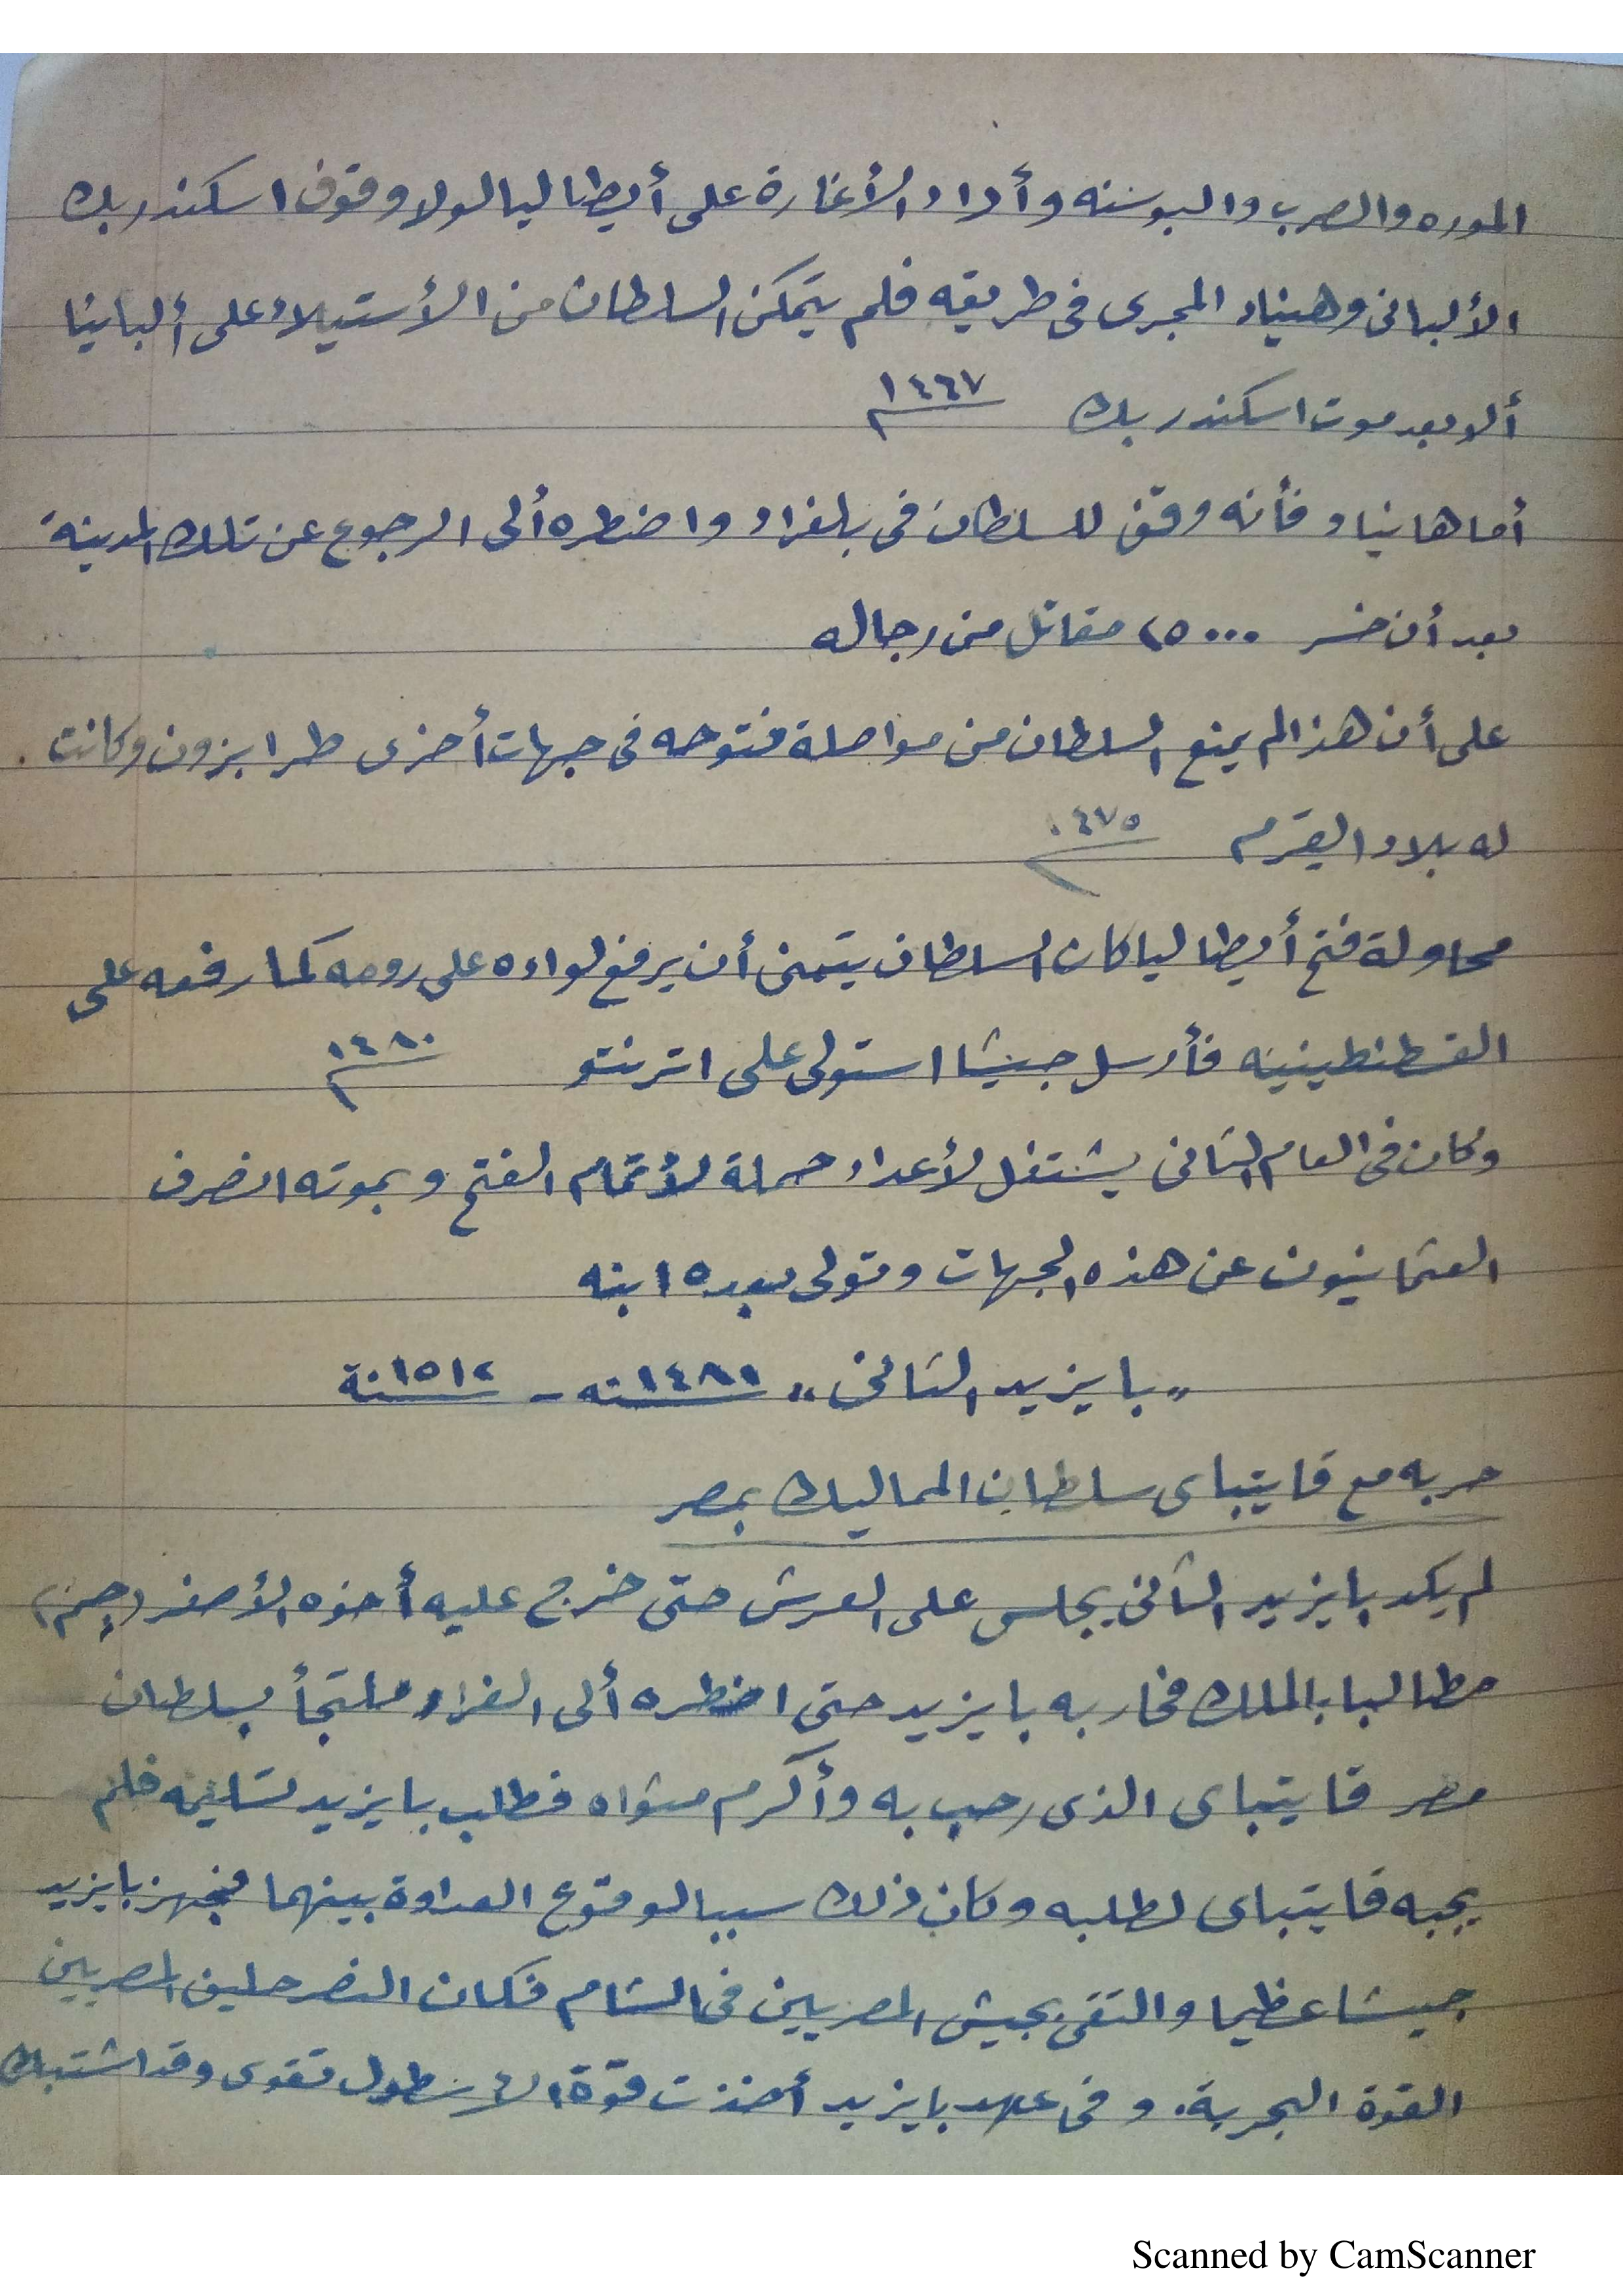 الموره والصرب والبوسنه وأراد الأغارة على أيطاليا لولا وقوف اسكندر بك
الألبانى وهنياد المجرى فى طريقه فلم يتمكن السلطان من الأستيلاء على ألبانيا
ألا بعد موت اسكندر بك ١٤٦٧م
أما هانياد فأنه وقف للسلطان فى بلغراد واضطره ألى الرجوع عن تلك المدينة
بعد أن خسر ٢٥٠٠٠ مقاتل من رجاله
على أن هذا لم يمنع السلطان من مواصلة فتوحه فى جهات أخرى طرابزون وكانت
له بلاد القرم ١٤٧٥م
محاولة فتح أيطاليا كان السلطان يتمنى أن يرفع لواءه على رومه كما رفعه على
القسطنطينيه فأرسل جيشا استولى على اترنتو ١٤٨٠م
وكان فى العام الثانى يشتغل لأعداد حملة لأتمام الفتح وبموته انصرف
العثمانيون عن هذه الجهات وتولى بعده ابنه
"بايزيد الثانى" ١٤٨١نه - ١٥١٢نة
حربه مع قايتباى سلطان المماليك بمصر
لم يكد بايزيد الثانى يجلس على العرش حتى خرج عليه أخوه الأصغر (چم)
مطالبا بالملك فحاربه بايزيد حتى اضطره ألى الفرار ملتجأ بسلطان
مصر قايتباى الذى رحب به وأكرم مثواه فطلب بايزيد تسليمه فلم
يجبه قايتباى لطلبه وكان ذلك سببا لوقوع العداوة بينهما فجهز بايزيد
جيشا عظيما والتقى بجيش المصريين فى الشام فكان النصر حليف المصريين
القوة البحرية. وفى عهد بايزيد أخذت قوة الاسطول تقوى وقد اشتبك
Scanned by CamScanner